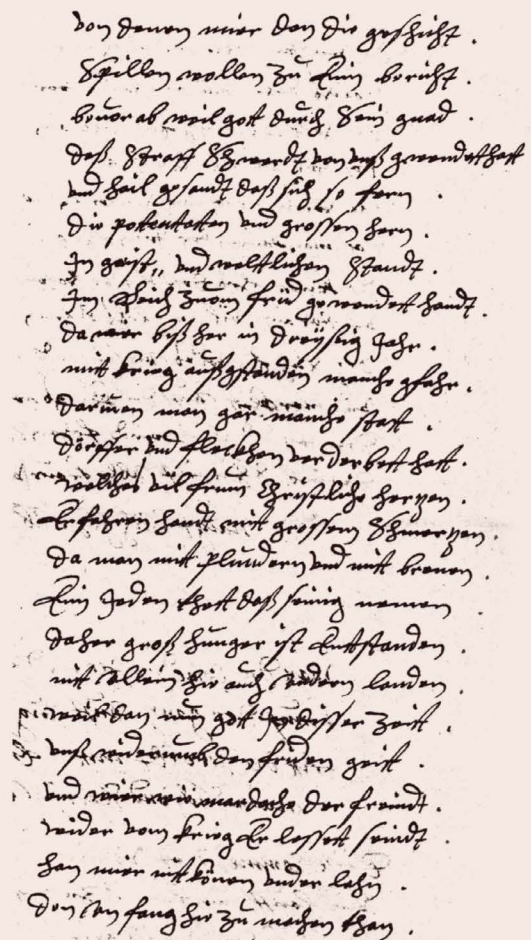 von denen mier den die geschicht.
Spillen wollen zu Einn bericht.
bevorab weil gott durch Sein gnad.
daß Straff Schwerdt von vnß gwendet hatt
vnd heil gesandt daß sich so fern.
die pottentatten vnd grossen hern.
In geist,, vnd weltlichen Standt.
Im Reich zuom frid gewendett handt.
da wier biß her in dreyssig Jahr.
mitt krieg außgstanden manche gfahr.
darinen man gar manche statt.
dörffer vnd fleckhen verderbett hatt.
welches vil frum Christliche hertzen.
Erfahren handt mitt grossem Schmertzen.
da man mitt plundern vnd mitt brenen.
Einn Jeden thett daß seinig nemen
daher groß hunger ist Enttstanden.
nitt allein hie auch andern landen.
weil dan nun gott zu disser zeitt.
vnß widerumb den friden geitt.
vnd wier der freindt.
wider vom krieg Erlessett seindt.
han mier nitt könen vnder lohn.
den anfang hie zu machen than.